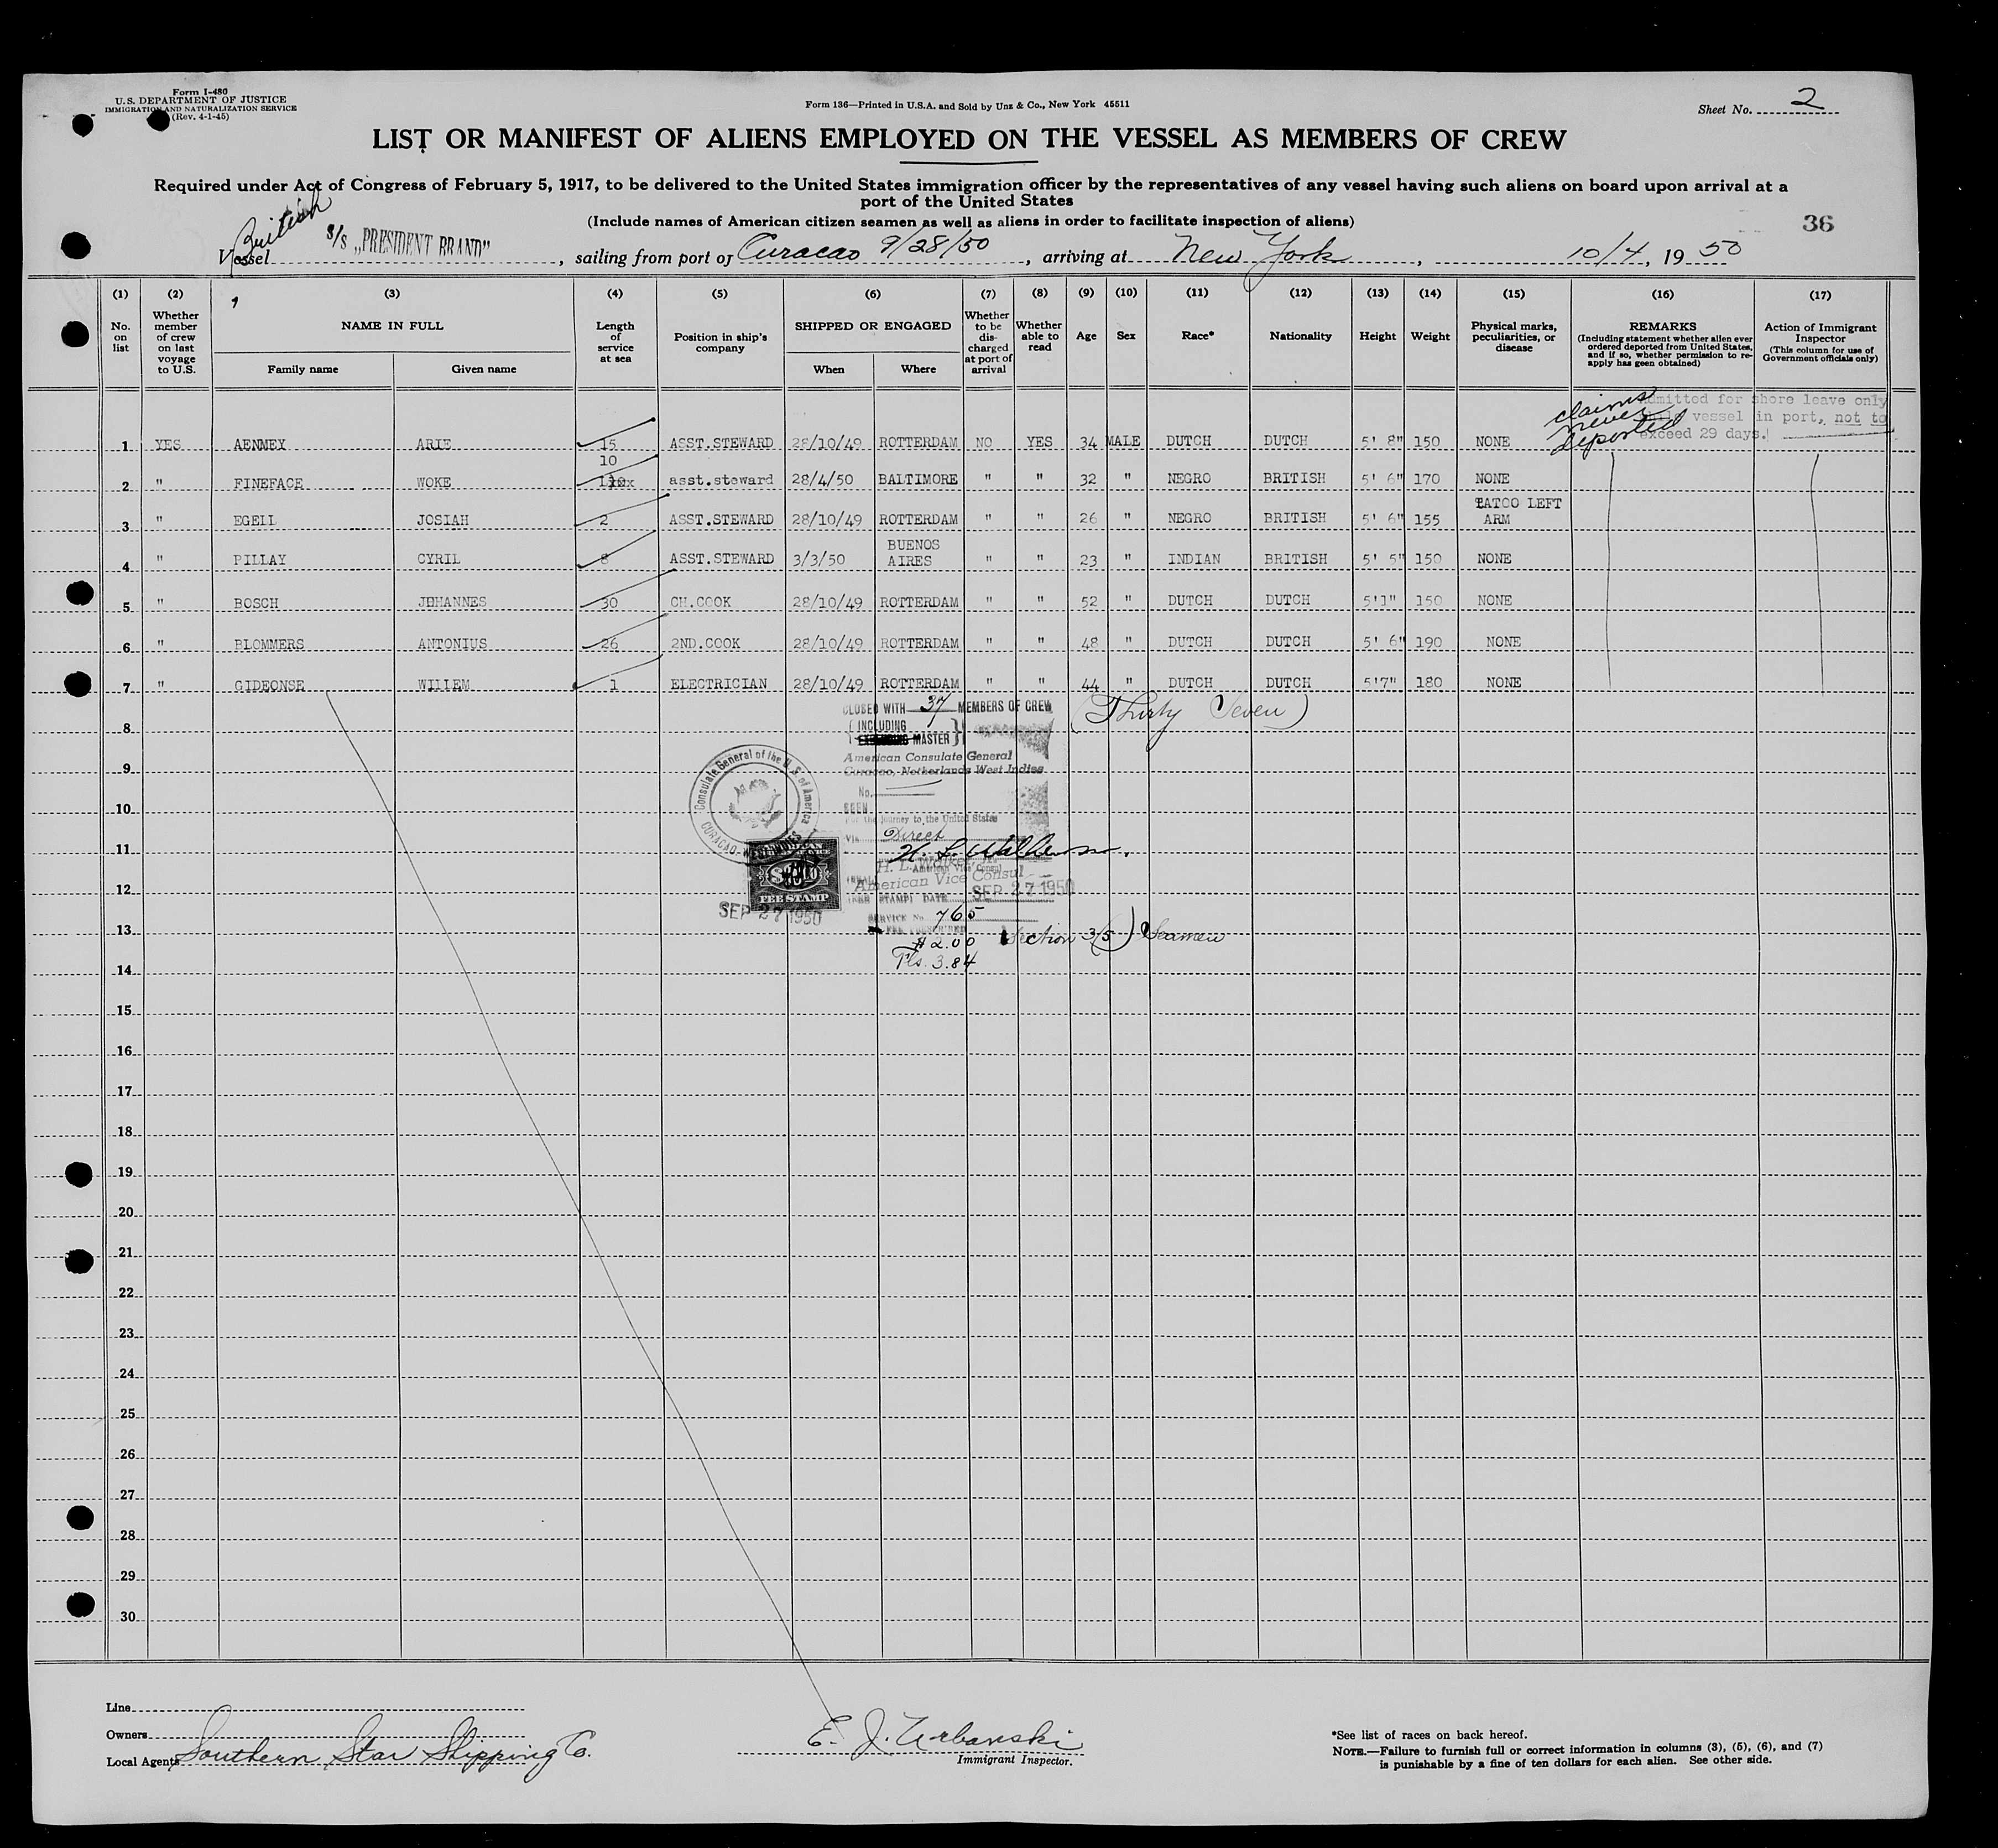 Form I-480
U.S. DEPARTMENT OF JUSTICE
IMMIGRATION AND NATURALIZATION SERVICE
(Rev. 4-1-45)
Form 136—Printed in U.S.A. and Sold by Unz & Co., New York 45511
Sheet No. 2
LIST OR MANIFEST OF ALIENS EMPLOYED ON THE VESSEL AS MEMBERS OF CREW
Required under Act of Congress of February 5, 1917, to be delivered to the United States immigration officer by the representatives of any vessel having such aliens on board upon arrival at a
port of the United States
(Include names of American citizen seamen as well as aliens in order to facilitate inspection of aliens)
36
British
Vessel S/S „PRESIDENT BRAND", sailing from port of Curacao 9/28/50, arriving at New York, 10/4, 1950
(1) (2) (3) (4) (5) (6) (7) (8) (9) (10) (11) (12) (13) (14) (15) (16) (17)
No. on list
Whether member of crew on last voyage to U.S.
NAME IN FULL
Family name Given name
Length of service at sea
Position in ship's company
SHIPPED OR ENGAGED
When Where
Whether to be discharged at port of arrival
Whether able to read
Age
Sex
Race*
Nationality
Height
Weight
Physical marks, peculiarities, or disease
REMARKS
(Including statement whether alien ever ordered deported from United States, and if so, whether permission to re-apply has geen obtained)
Action of Immigrant Inspector
(This column for use of Government officials only)
claims never deported
admitted for shore leave only
vessel in port, not to
exceed 29 days.
1 YES AENMEY ARIE 15 ASST.STEWARD 28/10/49 ROTTERDAM NO YES 34 MALE DUTCH DUTCH 5' 8" 150 NONE
10
2 " FINEFACE WOKE asst.steward 28/4/50 BALTIMORE " " 32 " NEGRO BRITISH 5' 6" 170 NONE
3 " EGELL JOSIAH 2 ASST.STEWARD 28/10/49 ROTTERDAM " " 26 " NEGRO BRITISH 5' 6" 155 TATOO LEFT ARM
4 " PILLAY CYRIL 8 ASST.STEWARD 3/3/50 BUENOS AIRES " " 23 " INDIAN BRITISH 5' 5" 150 NONE
5 " BOSCH JOHANNES 30 CH.COOK 28/10/49 ROTTERDAM " " 52 " DUTCH DUTCH 5'1" 150 NONE
6 " BLOMMERS ANTONIUS 26 2ND.COOK 28/10/49 ROTTERDAM " " 48 " DUTCH DUTCH 5' 6" 190 NONE
7 " GIDEONSE WILLEM 1 ELECTRICIAN 28/10/49 ROTTERDAM " " 44 " DUTCH DUTCH 5'7" 180 NONE
CLOSED WITH 37 MEMBERS OF CREW (Thirty Seven)
8
INCLUDING
MASTER
American Consulate General
9
Curacao, Netherlands West Indies
Consulate General of the U.S. of America
CURACAO, WEST INDIES
No.
SEEN
10
For the journey to the United States
Via Direct
11
H. L. Walker
American Vice Consul
12
FEE STAMP
(FEE STAMP) DATE SEP 27 1950
SEP 27 1950
SERVICE No. 765
13
$2.00 Section 3(5) Seamen
14
Fls. 3.84
15
16
17
18
19
20
21
22
23
24
25
26
27
28
29
30
Line
Owners
Local Agents Southern Star Shipping Co.
E. J. Urbanski
Immigrant Inspector.
*See list of races on back hereof.
NOTE.—Failure to furnish full or correct information in columns (3), (5), (6), and (7)
is punishable by a fine of ten dollars for each alien. See other side.